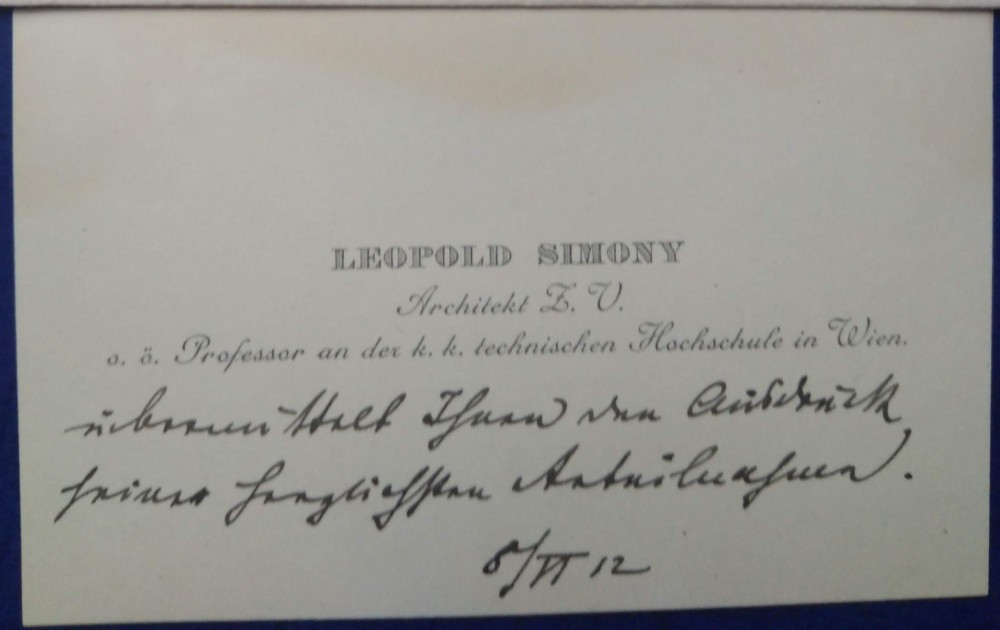 LEOPOLD SIMONY
Architekt Z. V.
o. ö. Professor an der k. k. technischen Hochschule in Wien.
übermittelt Ihnen den Ausdruck
seiner herzlichsten Anteilnahme.